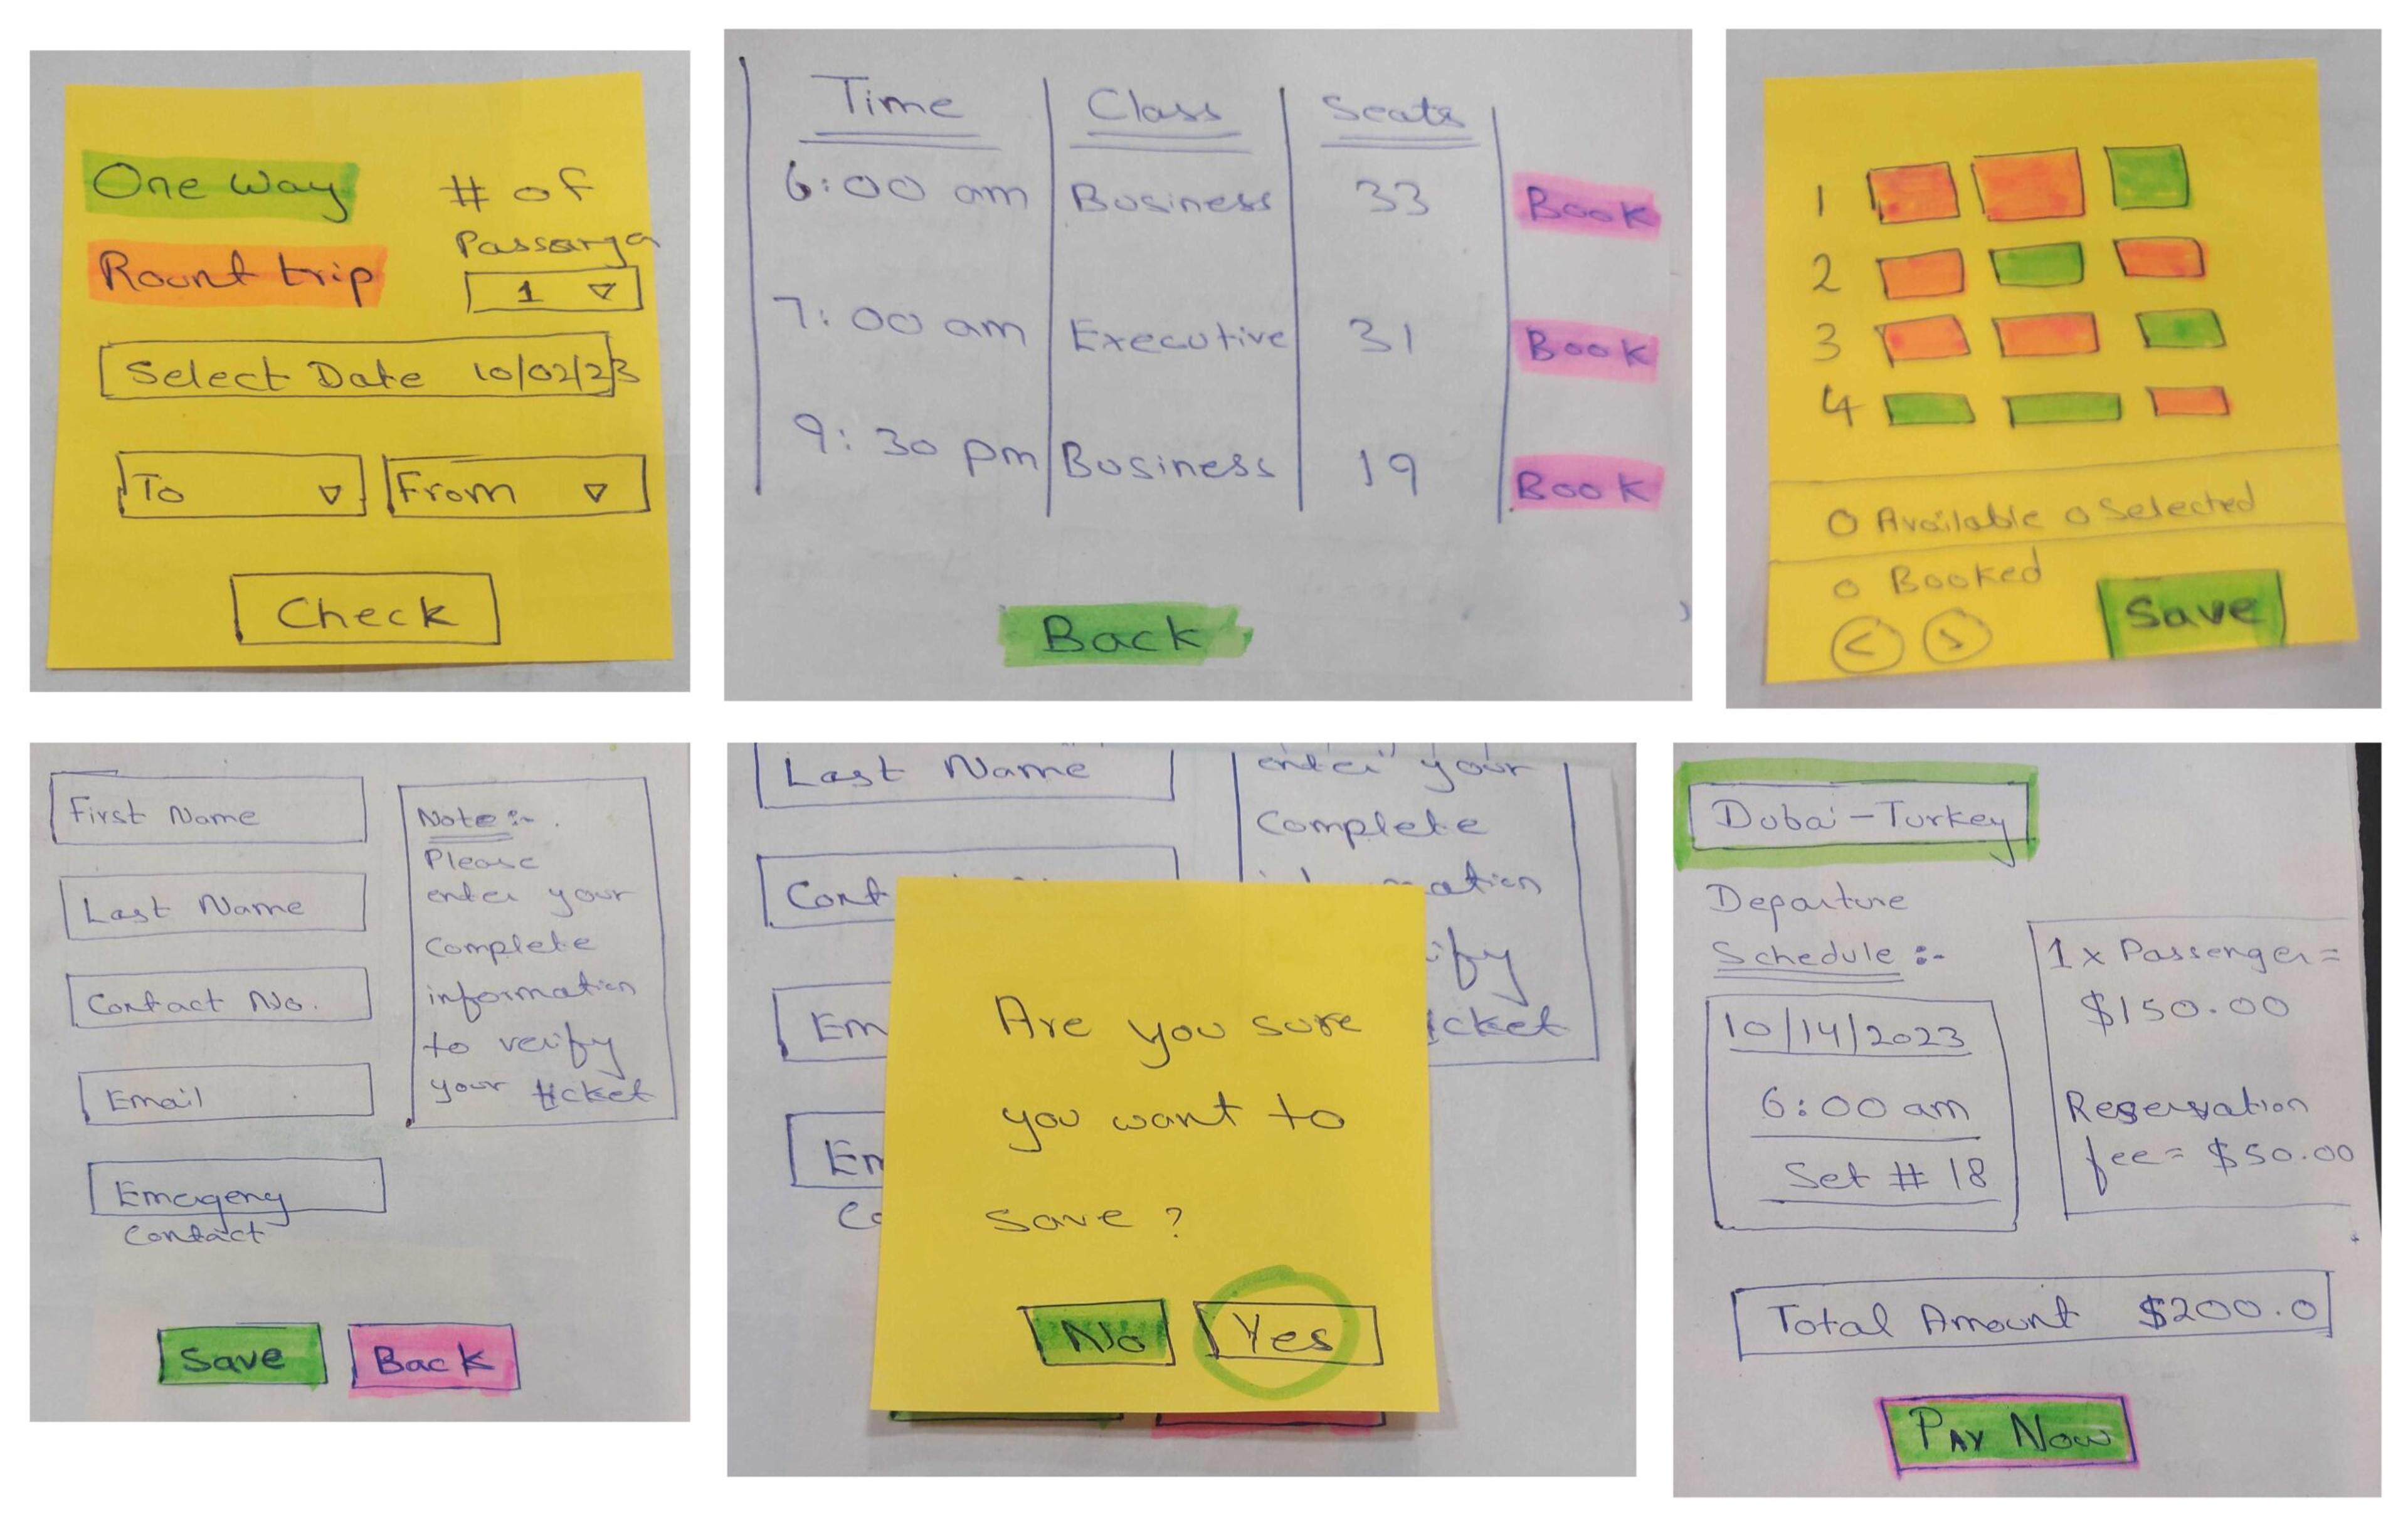 One Way
# of
Passanga
Rount trip
1
Select Date 10/02/23
To
From
Check
Time Class Seats
6:00 am Business 33 Book
7:00 am Executive 31 Book
9:30 pm Business 19 Book
Back
1
2
3
4
O Available o Selected
o Booked
< >
Save
First Name
Last Name
Contact No.
Email
Emergeny
Contact
Note:-
Please
enter your
Complete
information
to verify
your ticket
Save Back
Last Name
Cont
Em
Em
Co
enter your
Complete
mation
ify
icket
Are you sure
you want to
save ?
No Yes
Dubai-Turkey
Departure
Schedule :-
10/14/2023
6:00 am
Set # 18
1 x Passenger =
$150.00
Reservation
fee = $50.00
Total Amount $200.0
Pay Now